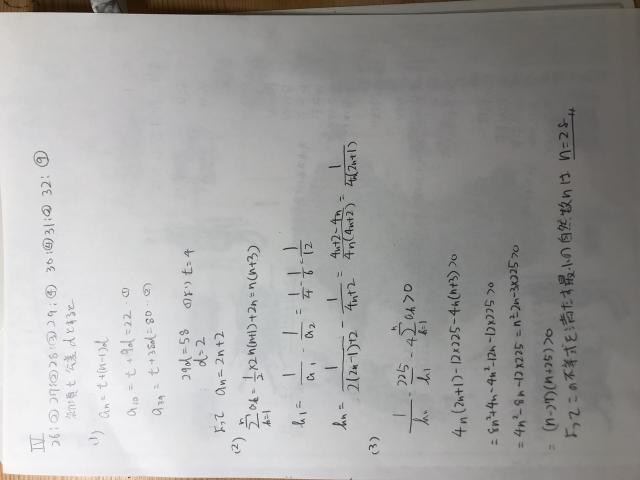 IV
26:② 27:② 28:② 29:④ 30:④ 31:② 32:⑨
初項t 公差dとすると
(1) an = t+(n-1)d
a10 = t+9d=22 …①
a39 = t+38d=80 …②
29d=58 ①より t=4
d=2
よって an=2n+2
(2) n∑k=1 ak = 1/2×2n(n+1)+2n = n(n+3)
b1 = 1/a1 - 1/a2 = 1/4 - 1/6 = 1/12
bn = 1/(2(2n-1)+2) - 1/(4n+2) = (4n+2-4n)/(4n(4n+2)) = 1/(4n(2n+1))
(3)
1/bn - 225/b1 - 4 n∑k=1 ak > 0
4n(2n+1)-12×225-4n(n+3)>0
= 8n²+4n-4n²-12n-12×225>0
= 4n²-8n-12×225 = n²-2n-3×225>0
= (n-27)(n+25)>0
よってこの不等式を満たす最小の自然数nは n=28